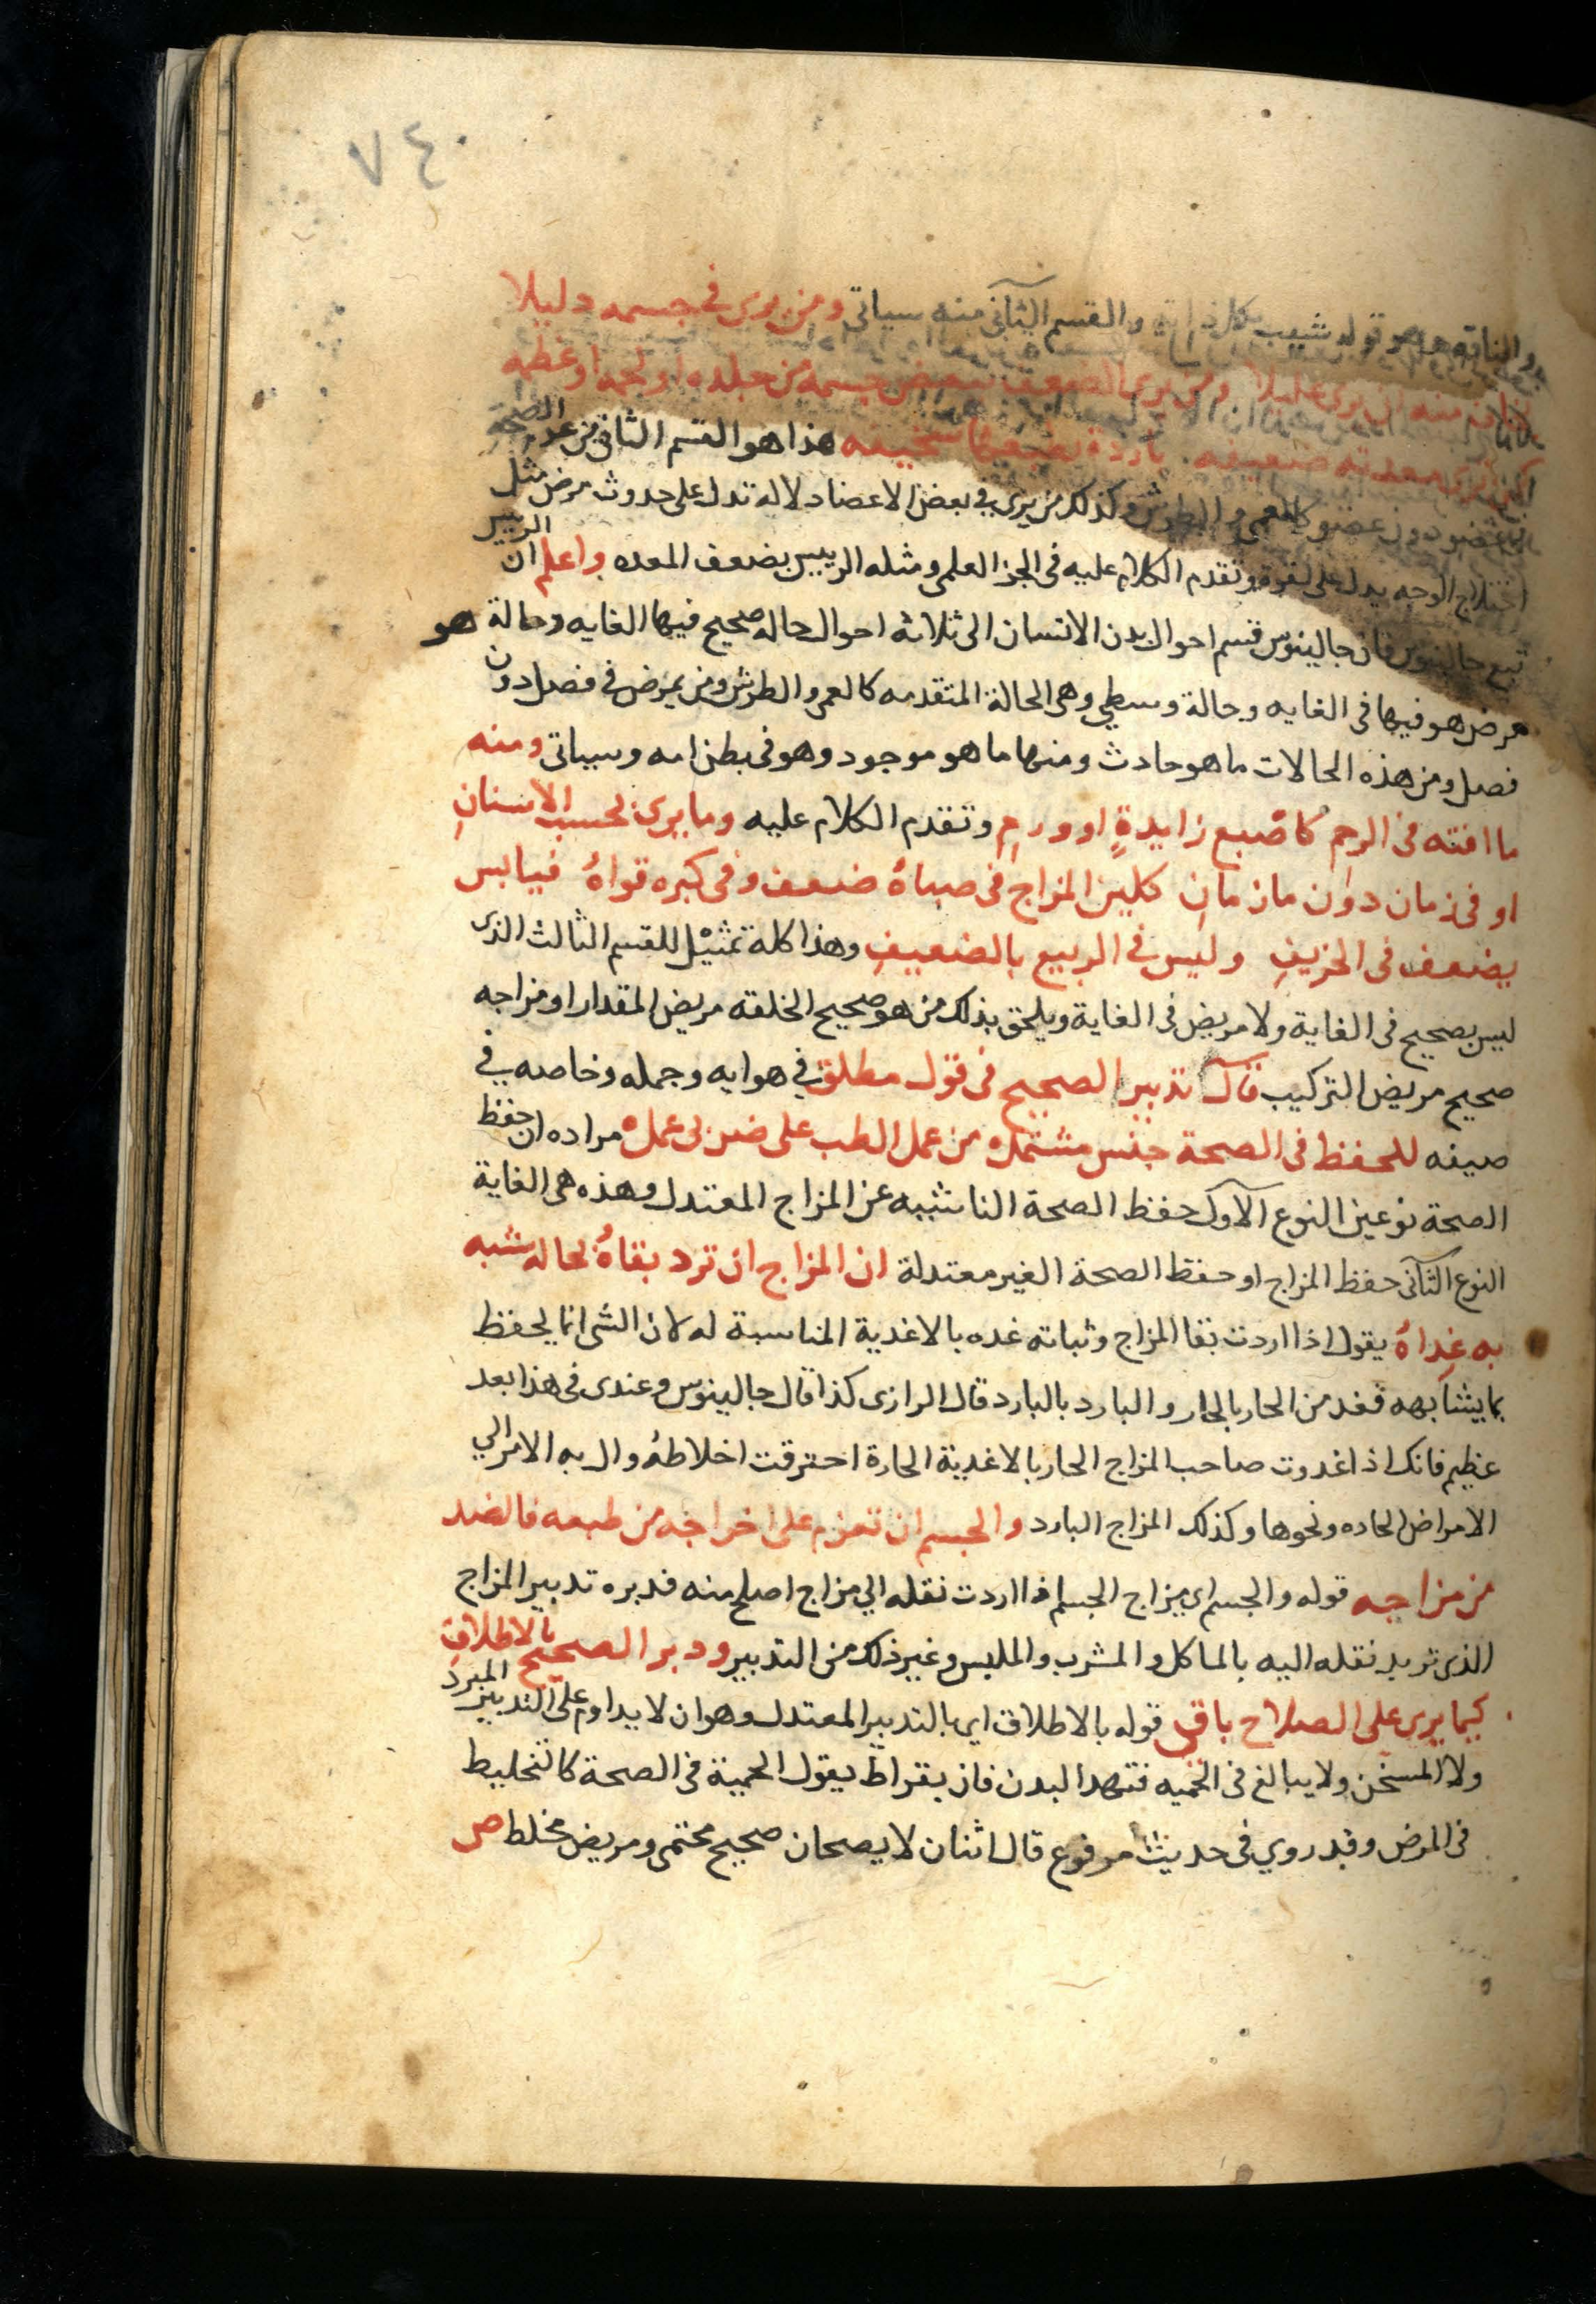 ٧٤٠
والناقه وهو قوله شيب بكل ذاته والقسم الثاني منه سياتي ومن يرى في جسمه دليلا
منه ان يرى عليلا ومن يرى الضعف ببعض جسمه من جلده او لحمه او عظمه
معدته ضعيفه باردة بطبعها سخيفه هذا هو القسم الثاني من عدم الصحة
في عضو دون عضو كالعمى والطرش وكذلك من يرى في بعض الاعضا دلالة تدل على حدوث مرض مثل
اختلاج الوجه يدل على لقوة وتقدم الكلام عليه في الجز العلمي ومثله الرييس بضعف المعده واعلم ان الرييس
تبع جالينوس فان جالينوس قسم احوال بدن الانسان الى ثلاثة احوال حاله صحيح فيها الغايه وحالة هو
مرض هو فيها في الغايه وحالة وسطي وهي الحالة المتقدمه كالعمى والطرش ومن يمرض في فصل دون
فصل ومن هذه الحالات ما هو حادث ومنها ما هو موجود وهو في بطن امه وسياتي ومنه
ما افته في الرحم كاصبع زايدةٍ او ورمِ وتقدم الكلام عليه وما يرى بحسب الاسنانِ
او في زمان دون ما زمانِ كلين المزاج في صباهُ ضعف وفي كبره قواهُ فيابس
يضعف في الخريفِ وليس في الربيع بالضعيفِ وهذا كله تمثيل للقسم الثالث الذى
ليس بصحيح في الغاية ولا مريض في الغاية ويلحق بذلك من هو صحيح الخلقه مريض المقدار او مزاجه
صحيح مريض التركيب قال تدبير الصحيح في قول مطلق في هوايه وجمله وخاصه في
صيفه للحفظ في الصحة جنس مشتمله من عمل الطب على ضربى عمله مراده ان حفظ
الصحة نوعين النوع الاول حفظ الصحة الناشيه عن المزاج المعتدل وهذه هى الغاية
النوع الثاني حفظ المزاج او حفظ الصحة الغير معتدلة ان المزاج ان ترد بقاهُ بحاله شبه
به غِداهُ يقول اذا اردت بقا المزاج وثباته غده بالاغدية المناسبة له لان الشى انما يحفظ
بما يشابهه فغد من الحار بالحار والبارد بالبارد قال الرازى كذا قال جالينوس وعندى في هذا بعد
عظيم فانك اذا غدوت صاحب المزاج الحار بالاغدية الحارة احترقت اخلاطهُ وال به الامر الي
الامراض الحاده ونحوها وكذلك المزاج البارد والجسم ان تعزم على اخراجه من طبعه فالضد
من مزاجه قوله والجسم اى مزاج الجسم اذا اردت نقله الي مزاج اصلح منه فدبره تدبير المزاج
الذى تريد نقله اليه بالماكل والمشرب والملبس وغير ذلك من التدبير ودبر الصحيح بالاطلاقِ
كيما يرى على الصلاح باقى قوله بالاطلاق اى بالتدبير المعتدل وهو ان لا يداوم على التدبير المبرد
ولا المسخن ولا يبالغ في الحميه فتنهد البدن فان بقراط يقول الحمية في الصحة كالتخليط
في المرض وقد روي في حديث مرفوع قال اثنان لا يصحان صحيح محتمى ومريض مخلط ص